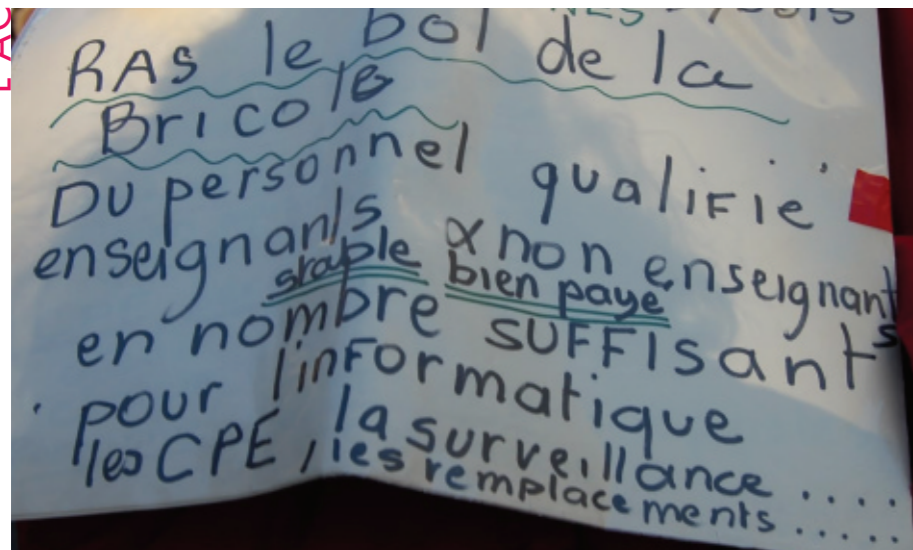 RAS le bol de la
Bricole
Du personnel qualifié
enseignants & non enseignants
stable bien payé
en nombre SUFFISant
pour l'informatique
les CPE, la surveillance ....
les remplacements .....